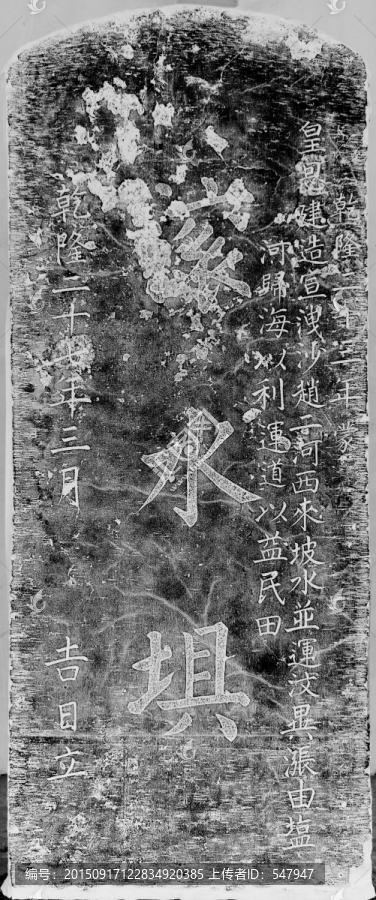 乾隆二十三年蒙
皇恩建造宣洩沙趙二河西來坡水並運汶異漲由塩
河歸海以利運道以益民田
滾水埧
乾隆二十七年三月 吉日立
编号：20150917122834920385 上传者ID：547947